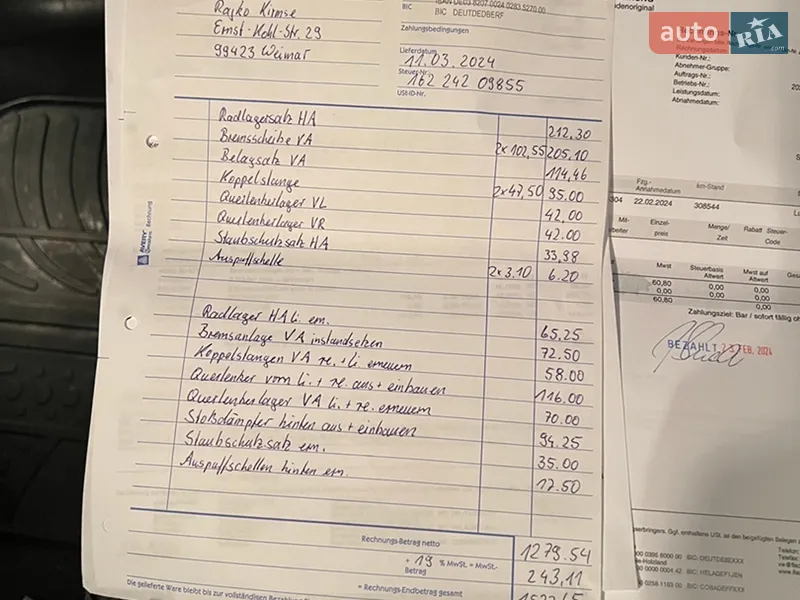 IBAN DE03 8207 0024 0283 5270 00
BIC DEUTDEDBERF
Zahlungsbedingungen
Rajko Kirmse
Ernst-Kohl-Str. 29
99423 Weimar
Lieferdatum
11.03.2024
Steuer-Nr.
162 242 09855
USt-ID-Nr.
Radlagersatz HA 212.30
Bremsscheibe VA 2x102,55 205,10
Belagsatz VA 114,46
Koppelstange 2x47,50 95.00
Querlenkerlager VL 42,00
Querlenkerlager VR 42.00
Staubschutzsatz HA 33,98
Auspuffschelle 2x3,10 6.20
Radlager HA li. ern. 65,25
Bremsanlage VA instandsetzen 72.50
Koppelstangen VA re. + li erneuern 58.00
Querlenker vorn li. + re. aus + einbauen 116.00
Querlenkerlager VA li. + re. erneuern 70.00
Stoßdämpfer hinten aus + einbauen 94.25
Staubschutzsatz ern. 35.00
Auspuffschellen hinten ern. 17.50
Rechnungs-Betrag netto 1279.54
+ 19 % MwSt. = MwSt.-Betrag 243,11
= Rechnungs-Endbetrag gesamt
Die gelieferte Ware bleibt bis zur vollständigen
AVERY
Zweckform
Rechnung
auto RIA
.com
Kunden-Nr.:
Abnehmer-Gruppe:
Auftrags-Nr.:
Betriebs-Nr.:
Leistungsdatum:
Abnahmedatum:
Fzg.-Annahmedatum km-Stand
304 22.02.2024 308544
Einzel-preis Menge/Zeit Rabatt Steuer-Code
Mwst Steuerbasis Altwert Mwst auf Altwert
60,80 0,00 0,00
0,00 0,00 0,00
60,80
Zahlungsziel: Bar / sofort fällig
BEZAHLT 23. FEB. 2024